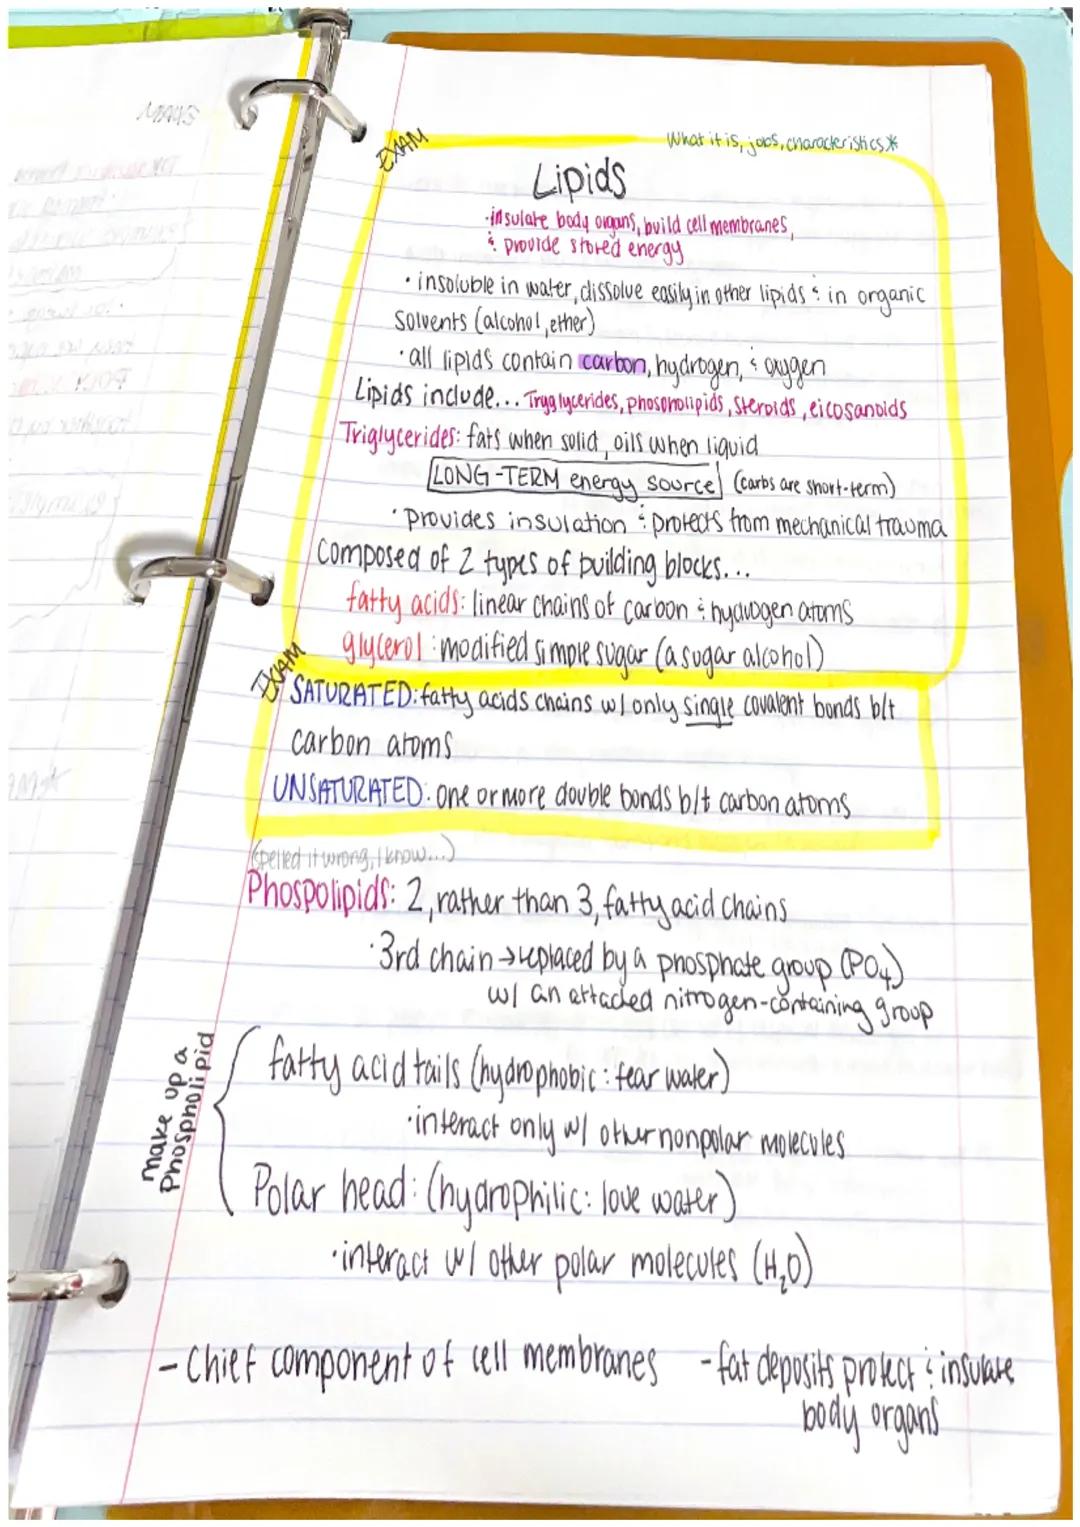 EXAM
What it is, jobs, characteristics*
Lipids
·insulate body organs, build cell membranes,
& provide stored energy
· insoluble in water, dissolve easily in other lipids & in organic
solvents (alcohol, ether)
· all lipids contain carbon, hydrogen, & oxygen
Lipids include... Tryglycerides, phospholipids, steroids, eicosanoids
Triglycerides: fats when solid, oils when liquid
LONG-TERM energy source (carbs are short-term)
· Provides insulation & protects from mechanical trauma
Composed of 2 types of building blocks...
fatty acids: linear chains of carbon & hydrogen atoms
glycerol: modified simple sugar (a sugar alcohol)
EXAM
SATURATED: fatty acids chains w/ only single covalent bonds b/t
carbon atoms
UNSATURATED: one or more double bonds b/t carbon atoms
(spelled it wrong, I know...)
Phospolipids: 2, rather than 3, fatty acid chains
·3rd chain → replaced by a phosphate group (PO4)
w/ an attached nitrogen-containing group
make up a
Phospholipid
fatty acid tails (hydrophobic: fear water)
·interact only w/ other nonpolar molecules
Polar head: (hydrophilic: love water)
·interact w/ other polar molecules (H2O)
- Chief component of cell membranes
- fat deposits protect & insulate
body organs